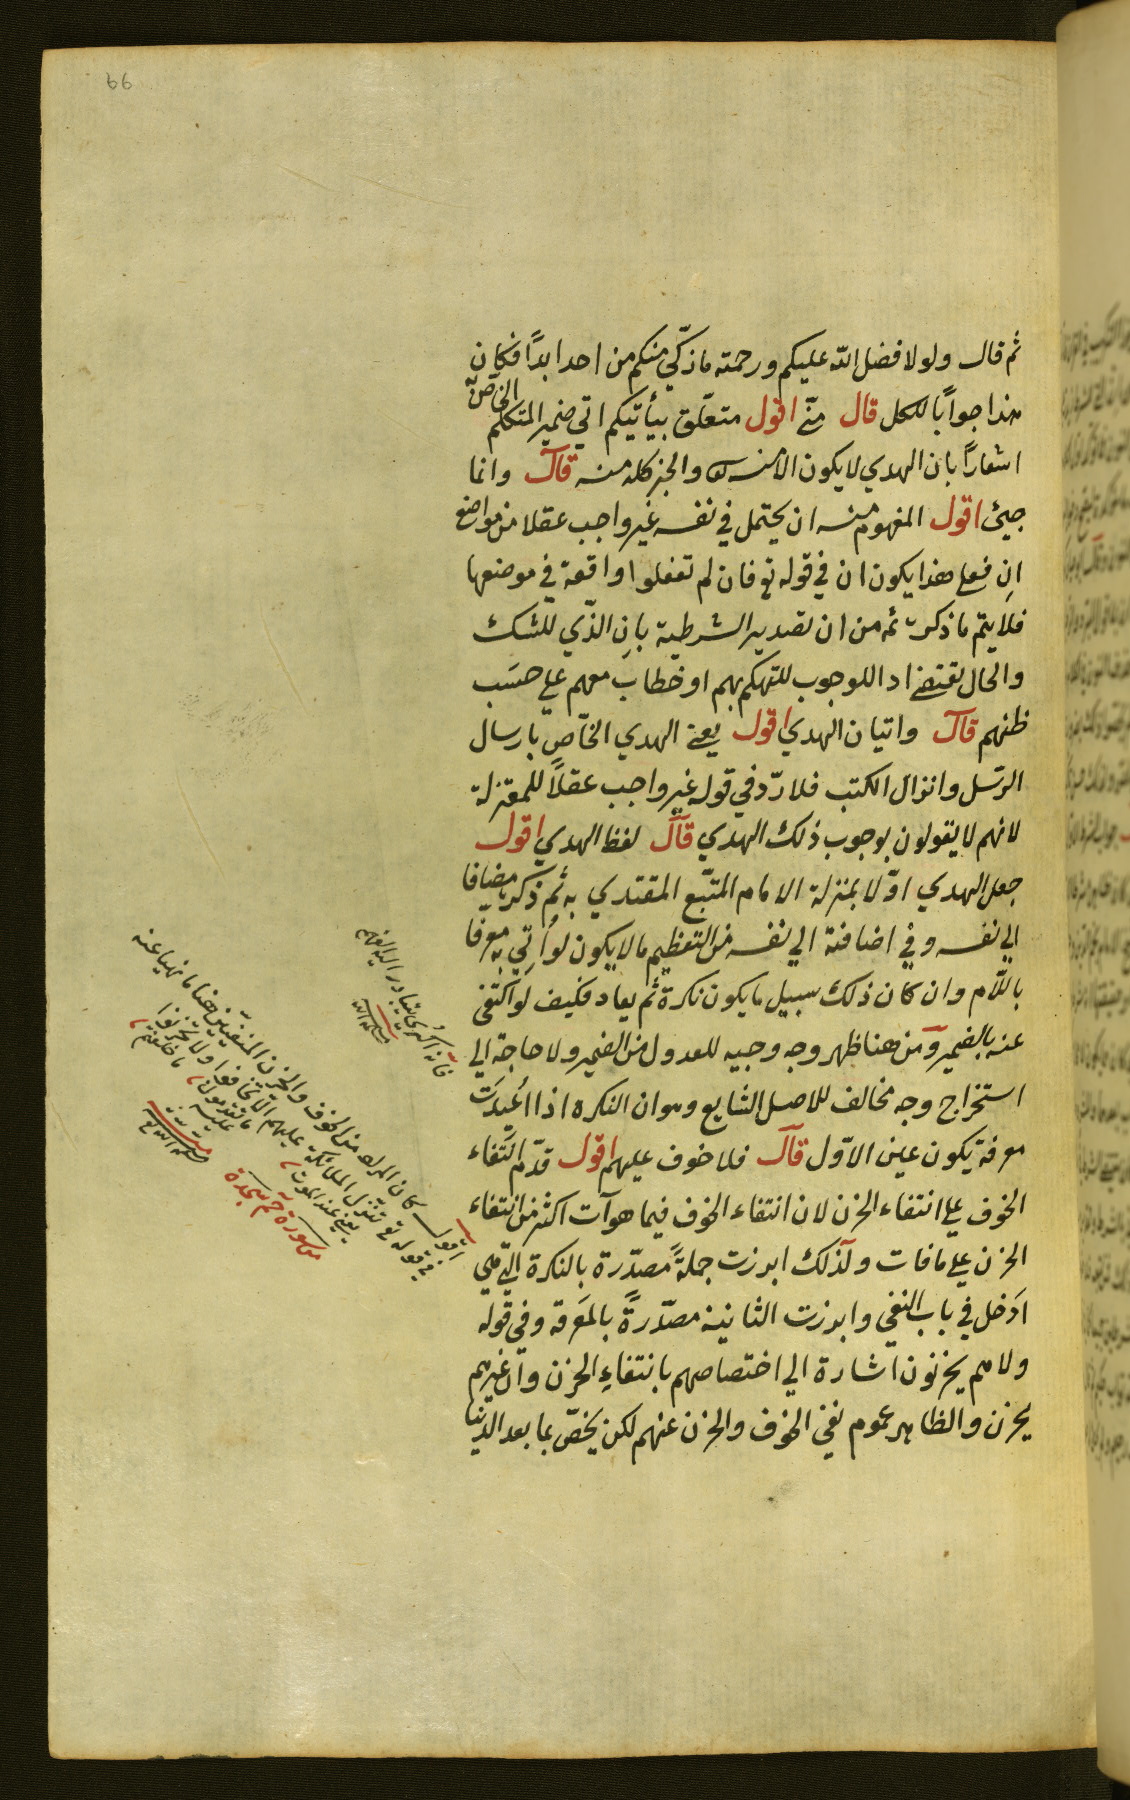 66
ثم قال ولولا فضل الله عليكم ورحمته ما زكّي منكم من احد ابداً فكان
هذا جواباً للكل قال منّي اقول متعلّق بيأتيّكم اتي ضمير المتكلم الخاصّ
اشعاراً بان الهدي لا يكون الا منه والخير كله منه قال وانما
جيئ اقول المفهوم منه ان يحتمل في نفسه غير واجب عقلا من مواضع
اِن فعلى هذا يكون ان في قوله تع فان لم تفعلوا واقعة في موضعها
فلا يتم ما ذكر ثمه من ان تصدير الشرطية بان الذّي للشك
والحال يقتضي اذا للوجوب للتهكم بهم او خطاب معهم علي حسَب
ظنهم قال واتيان الهدي اقول يعني الهدي الخاّص بارسال
الرسّل وانزال الكتب فلا ردّ في قوله غير واجب عقلاً للمعتزلة
لانهم لا يقولون بوجوب ذلك الهدي قال لفظ الهدي اقول
جعل الهدي اوّلا بمنزلة الامام المتبّع المقتدي به ثم ذكر مضافا
الي نفسه وفي اضافته الي نفسه من التعظيم ما لا يكون لو اُتي به معرفا
باللّام وان كان ذلك سبيل ما يكون نكرة ثم يعاد فكيف لو اكتفى
عنه بالضمير ومن هنا ظهر وجه وجيه للعدول من الضمير ولا حاجة الي
استخراج وجه مخالف للاصل الشايع وهو ان النكره اذا اُعيدَت
معرفة يكون عين الاوّل قال فلا خوف عليهم اقول قدّم انتفاء
الخوف علي انتفاء الحزن لان انتفاء الخوف فيما هو آت اكثر من انتفاء
الحزن علي ما فات ولذلك ابرزت جملةً مصدّرة بالنكرة التي هي
ادَخل في باب النفي وابرزت الثانية مصدّرةً بالمعَرفة وفي قوله
ولا هم يحزنون اشارة الي اختصاصهم بانتفاءِ الحزن وان غيرهم
يحزن والظاهر عموم نفي الخوف والحزن عنهم لكن يخصّ بما بعد الدنيا
اقول كان المراد من الخوف والحزن المنفيين هنا ما نهيا عنه
في قوله تع تتنزل الملائكة عليهم الا تخافوا ولا تحزنوا
يعني عند الموت
من سورة حم سجدة